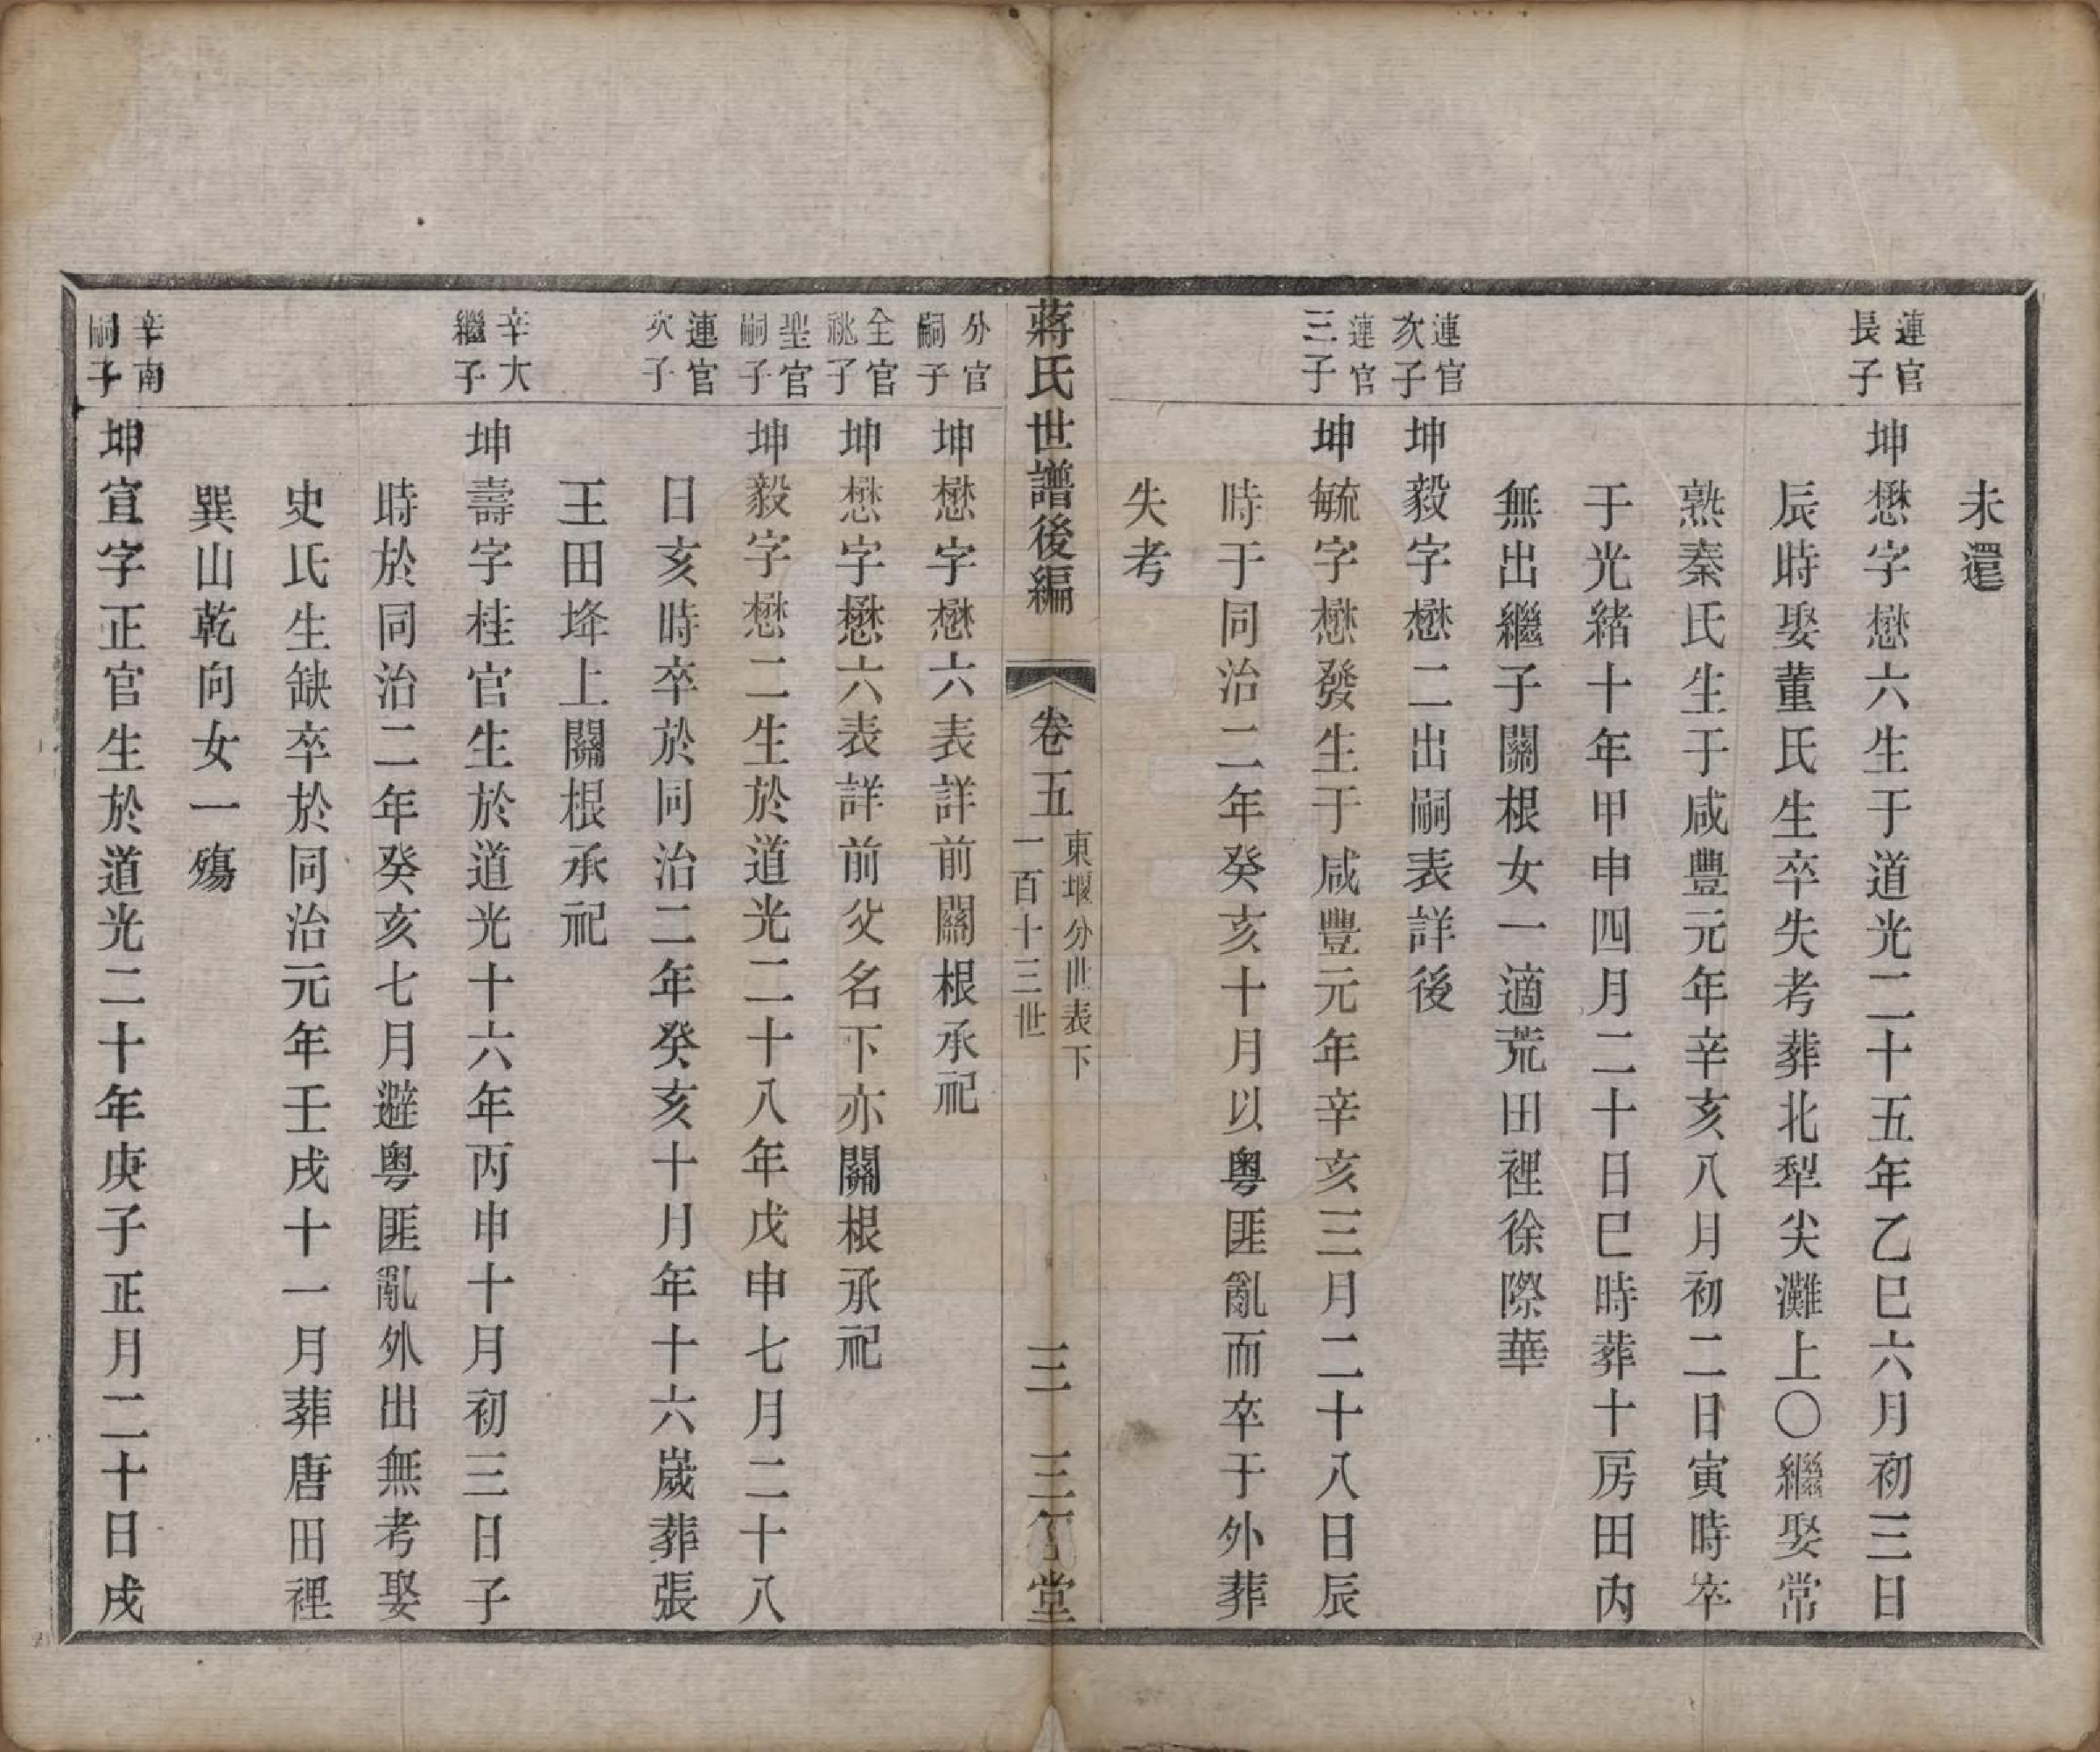 未還
連官
長子
坤懋字懋六生于道光二十五年乙巳六月初三日
辰時娶董氏生卒失考葬北犁尖灘上〇繼娶常
熟秦氏生于咸豐元年辛亥八月初二日寅時卒
于光緒十年甲申四月二十日巳時葬十房田內
無出繼子關根女一適荒田裡徐際華
連官
次子
坤毅字懋二出嗣表詳後
連官
三子
坤毓字懋發生于咸豐元年辛亥三月二十八日辰
時于同治二年癸亥十月以粵匪亂而卒于外葬
失考
蔣氏世譜後編
卷五
東堰分世表下
一百十三世
三
三徑堂
分官
嗣子
坤懋字懋六表詳前關根承祀
全官
祧子
坤懋字懋六表詳前父名下亦關根承祀
聖官
嗣子
坤毅字懋二生於道光二十八年戊申七月二十八
連官
次子
日亥時卒於同治二年癸亥十月年十六歲葬張
王田埄上關根承祀
辛大
繼子
坤壽字桂官生於道光十六年丙申十月初三日子
時於同治二年癸亥七月避粵匪亂外出無考娶
史氏生缺卒於同治元年壬戌十一月葬唐田裡
巽山乾向女一殤
辛南
嗣子
坤宜字正官生於道光二十年庚子正月二十日戌